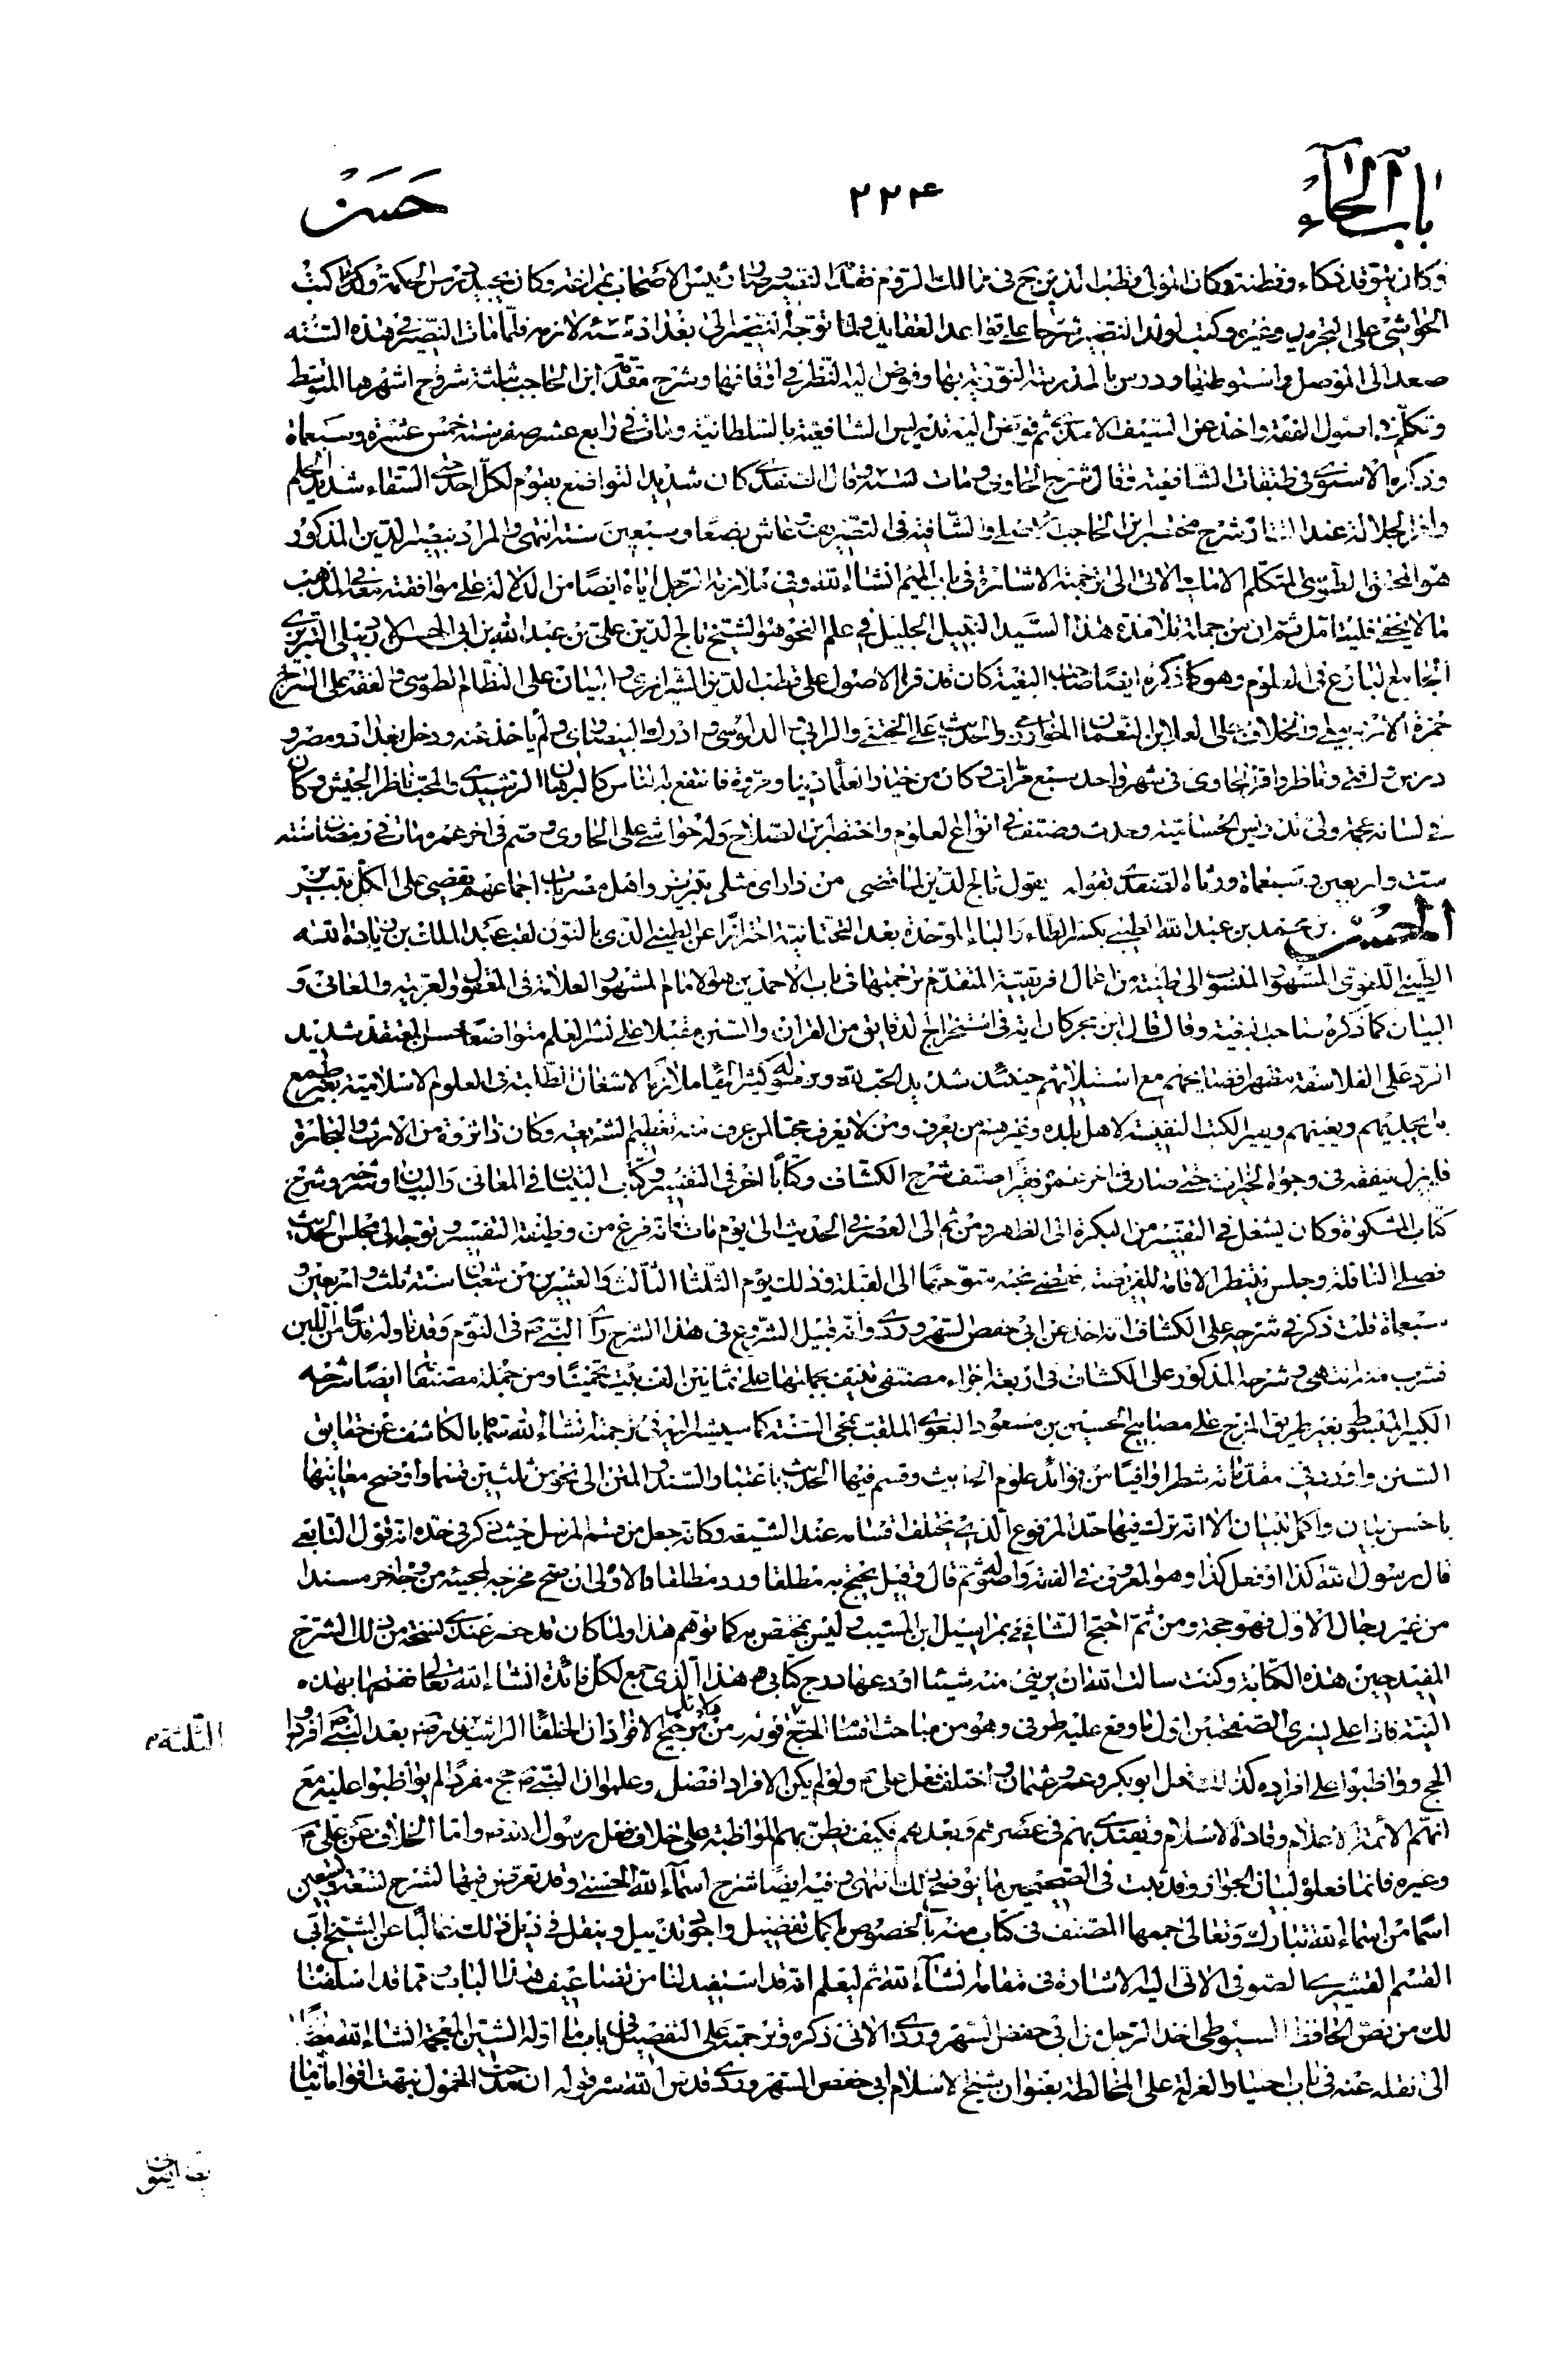 باب الحاء
٢٢٤
حسن
وكان يتوقد ذكاء وفطنة وكان المولى قطب الدين حج في ممالك الروم فقدم النصير وصار رئيس الاصحاب بمراغة وكان يجيد درس الحكمة وكتب
الحواشى على التجريد وغيره وكتب لولد النصير شرحا على قواعد العقايد ولما توجه النصير الى بغداد سنة لازمه فلما مات النصير في هذه السنة
صعد الى الموصل واستوطنها ودرس بالمدرسة النورية بها وفوض اليه النظر في اوقافها وشرح مقدمة ابن الحاجب بثلثة شروح اشهرها المتوسط
وتكلم في اصول الفقه واخذ عن السيف الامدى ثم فوض اليه تدريس الشافعية بالسلطانية ومات في رابع عشر صفر سنة خمس عشرة وسبعمائة
وذكره الاسنوى في طبقات الشافعية وقال شرح الحاوى ومات سنة وقال الصفدى كان شديد التواضع يقوم لكل احد حتى السقاء شديد الحلم
وافر الجلالة عند التتار شرح مختصر ابن الحاجب الاصلى والشافية في التصريف عاش بضعا وسبعين سنة انتهى والمراد بنصير الدين المذكور
هو المحقق الطوسى المتكلم الامامى الاتى الى ترجمته الاشارة في باب الميم انشاء الله وفي ملازمة الرجل اياه ايضا من الدلالة على موافقته معه في المذهب
ما لا يخفى فليتامل ثم ان من جملة تلامذة هذا السيد النبيل الجليل في علم النحو هو الشيخ تاج الدين على بن عبد الله بن ابى الحسن الاردبيلى التبريزى
الجامع البارع في العلوم وهو كما ذكره ايضا صاحب البغية كان قد قرا الاصول على قطب الدين الشيرازى والبيان على النظام الطوسى والفقه على السراج
حمزة الاردبيلى والخلاف على العلا ابن النعمان الخوارزمى والحديث على الختنى والوانى والدبوسى وادرك البيضاوى ولم ياخذ عنه ودخل بغداد ومصر و
درس وافتى وناظر واقرا الحاوى في شهر واحد سبع مرات وكان من خيار العلماء دينا ومروة فانتفع به الناس كالبرهان الرشيدى والمحب ناظر الجيش وكان
في لسانه عجمة ولى تدريس الحسامية وحدث وصنف في انواع العلوم واختصر ابن الصلاح وله حواش على الحاوى وصم في اخر عمره مات في رمضان سنة
ست واربعين وسبعمائة ورثاه الصفدى بقوله يقول تاج الدين لما قضى من ذا راى مثلى بتبريز واهل مصر بات اجماعهم يقضى على الكل بتبريز
الحسن بن محمد بن عبد الله الطيبى بكسر الطاء والباء الموحدة بعد التحتانية احترازا عن الطبنى الذى بالنون لقب عبد الملك بن زيادة الله
الطبنى اللغوى المشهور المنسوب الى طبنة من اعمال افريقية المتقدم ترجمتها في باب الاحمدين هو الامام المشهور العلامة في المعقول والعربية والمعانى و
البيان كما ذكره صاحب البغية وقال قال ابن حجر كان اية في استخراج الدقايق من القران والسنن مقبلا على نشر العلم متواضعا حسن المعتقد شديد
الرد على الفلاسفة مظهرا فضايحهم مع استيلائهم حينئذ شديد الحب لله ورسوله كثير الحياء ملازما لاشغال الطلبة في العلوم الاسلامية بغير طمع
بل يجديهم ويعينهم ويعير الكتب النفيسة لاهل بلده وغيرهم من يعرف ومن لا يعرف محبا لمن عرف منه تعظيم الشريعة وكان ذا ثروة من الارث والتجارة
فلم يزل ينفقه في وجوه الخيرات حتى صار في اخر عمره فقيرا صنف شرح الكشاف وكتابا اخر في التفسير وكتاب التبيان في المعانى والبيان وشرحه وشرح
كتاب المشكوة وكان يشتغل في التفسير من البكرة الى الظهر ومن ثم الى العصر في الحديث الى يوم مات فانه فرغ من وظيفة التفسير وتوجه الى مجلس الحديث
فصلى النافلة وجلس ينتظر الاقامة للفريضة فقضى نحبه متوجها الى القبلة وذلك يوم الثلثا الثالث والعشرين من شعبان سنة ثلث واربعين و
سبعمائة قلت ذكر في شرحه على الكشاف انه اخذ عن ابى حفص السهروردى وانه قبيل الشروع في هذا الشرح راى النبى ص في النوم وقد ناوله قدحا من اللبن
فشرب منه انتهى وشرحه المذكور على الكشاف في اربعة اجزاء مصنفى تنيف بجملتها على ثمانين الف بيت تخمينا ومن جملة مصنفاته ايضا شرحه
الكبير المبسوط بغير طريق المزج على مصابيح الحسين بن مسعود البغوى الملقب بمحى السنة كما سيشار اليه في ترجمته انشاء الله سماه بالكاشف عن حقايق
السنن واورد في مقدماته شطرا وافيا من فوائد علوم الحديث وقسم فيها الحديث باعتبار السند والمتن الى نحو من ثلثين قسما واوضح معانيها
باحسن بيان واكمل تبيان الا انه ترك فيها حد المرفوع الذى يختلف اقسامه عند الشيعة وكانه جعل من قسم المرسل حيث ذكر في حده انه قول التابعى
قال رسول الله كذا او فعل كذا وهو المعروف في الفقه واصوله ثم قال وقيل يحتج به مطلقا ورد مطلقا والاولى ان صح مخرجه لمجيئه من وجه اخر مسندا
من غير رجال الاول فهو حجة ومن ثم احتج الشافعى بمراسيل ابن المسيب وليس بمختص به كما توهم هذا ولما كان قد حضر عندى نسخة من ذلك الشرح
المفيد حين هذه الكتابة وكنت سالت الله ان يرينى منه شيئا اودعها درج كتابى هذا الذى جمع لكل فائدة انشاء الله تعالى ففتحتها بهذه
النية فاذا على يسرى الصفحتين اول ما وقع عليه طرفى وهو من مباحث انشاء الحج قوله ومن دلائل ترجيح الافراد ان الخلفاء الراشدين رض بعد النبى ص افردوا
الثلثة
الحج وواظبوا على افراده كذلك فعل ابو بكر وعمر وعثمان واختلف فعل على ع ولو لم يكن الافراد افضل وعلموا ان النبى ص حج مفردا لم يواظبوا عليه مع
انهم الائمة الاعلام وقادة الاسلام ويقتدى بهم في عصرهم وبعدهم فكيف يظن بهم المواظبة على خلاف فعل رسول الله ص واما الخلاف عن على ع
وغيره فانما فعلوه لبيان الجواز وقد ثبت في الصحيحين ما يوضح ذلك انتهى وفيه ايضا شرح اسماء الله الحسنى وقد تعرض فيها لشرح تسعة وتسعين
اسما من اسماء الله تبارك وتعالى جمعها المصنف في كتاب منه بالخصوص باكمل تفصيل واجود تذييل وينقل في ذيل ذلك غالبا عن الشيخ ابى
القسم القشيرى الصوفى الاتى اليه الاشارة في مقامه انشاء الله ثم ليعلم انه قد استفيد لنا من تضاعيف هذا الباب مما قد اسلفنا
لك من نص الحافظ السيوطى اخذ الرجل من ابى حفص السهروردى الاتى ذكره وترجمته على التفصيل في باب ما اوله الشين المعجمة انشاء الله مضافا
الى نقله عنه في باب اختيار العزلة على المخالطة بعنوان شيخ الاسلام ابى حفص السهروردى قدس الله سره قوله ان محدث الخمول نبهت اقواما نياما